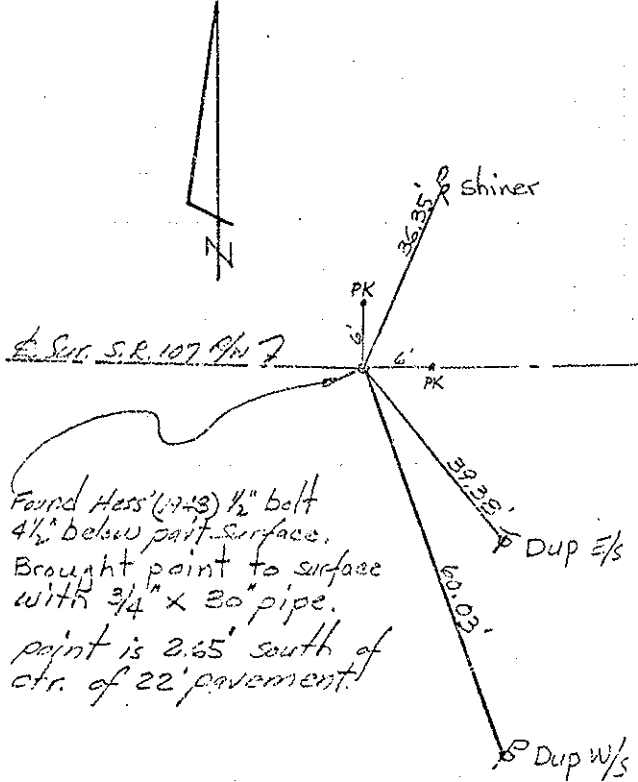 N
36.35'
shiner
PK
6'
6'
PK
℄ Sur. S.R. 107 P/N 7
39.38'
Dup E/s
60.03'
Dup W/s
Found Hess' (1943) 1/2" bolt
4 1/2" below pvmt. surface.
Brought point to surface
with 3/4" x 30" pipe.
point is 2.65' south of
ctr. of 22' pavement.